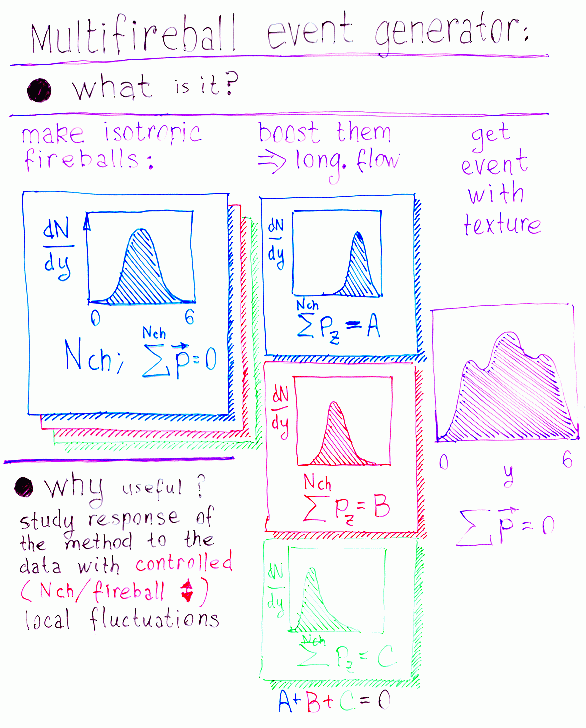 Multifireball event generator:
● what is it?
make isotropic
fireballs:
dN
dy
0 6
Nch; Nch ∑ p⃗ = 0
boost them
⇒ long. flow
dN
dy
Nch
∑ Pz = A
dN
dy
Nch
∑ Pz = B
dN
dy
Nch
∑ Pz = C
A+B+C=0
get
event
with
texture
0 y 6
∑ p⃗ = 0
● why useful?
study response of
the method to the
data with controlled
(Nch/fireball ♦)
local fluctuations